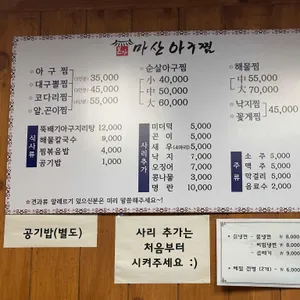 마산아구찜
○ 아 구 찜
○ 대구뽈찜
○ 코다리찜
○ 알.곤이찜
35,000
45,000
55,000
○ 순살아구찜
小 40,000
中 50,000
大 60,000
○ 해물찜
中 55,000
大 70,000
○ 낙지찜
○ 꽃게찜
45,000
식사류
뚝배기아구지리탕 12,000
해물칼국수 9,000
찜볶음밥 4,000
공기밥 1,000
사리추가
미더덕 5,000
곤 이 5,000
새 우 5,000
낙 지 7,000
오징어 7,000
콩나물 3,000
명 란 10,000
주류
소 주 5,000
맥 주 5,000
막걸리 5,000
음료수 2,000
※견과류 알레르기 있으신분은 미리 말씀해주세요~!
공기밥(별도)
사리 추가는
처음부터
시켜주세요 :)
물냉면 8,000
비빔냉면 8,000